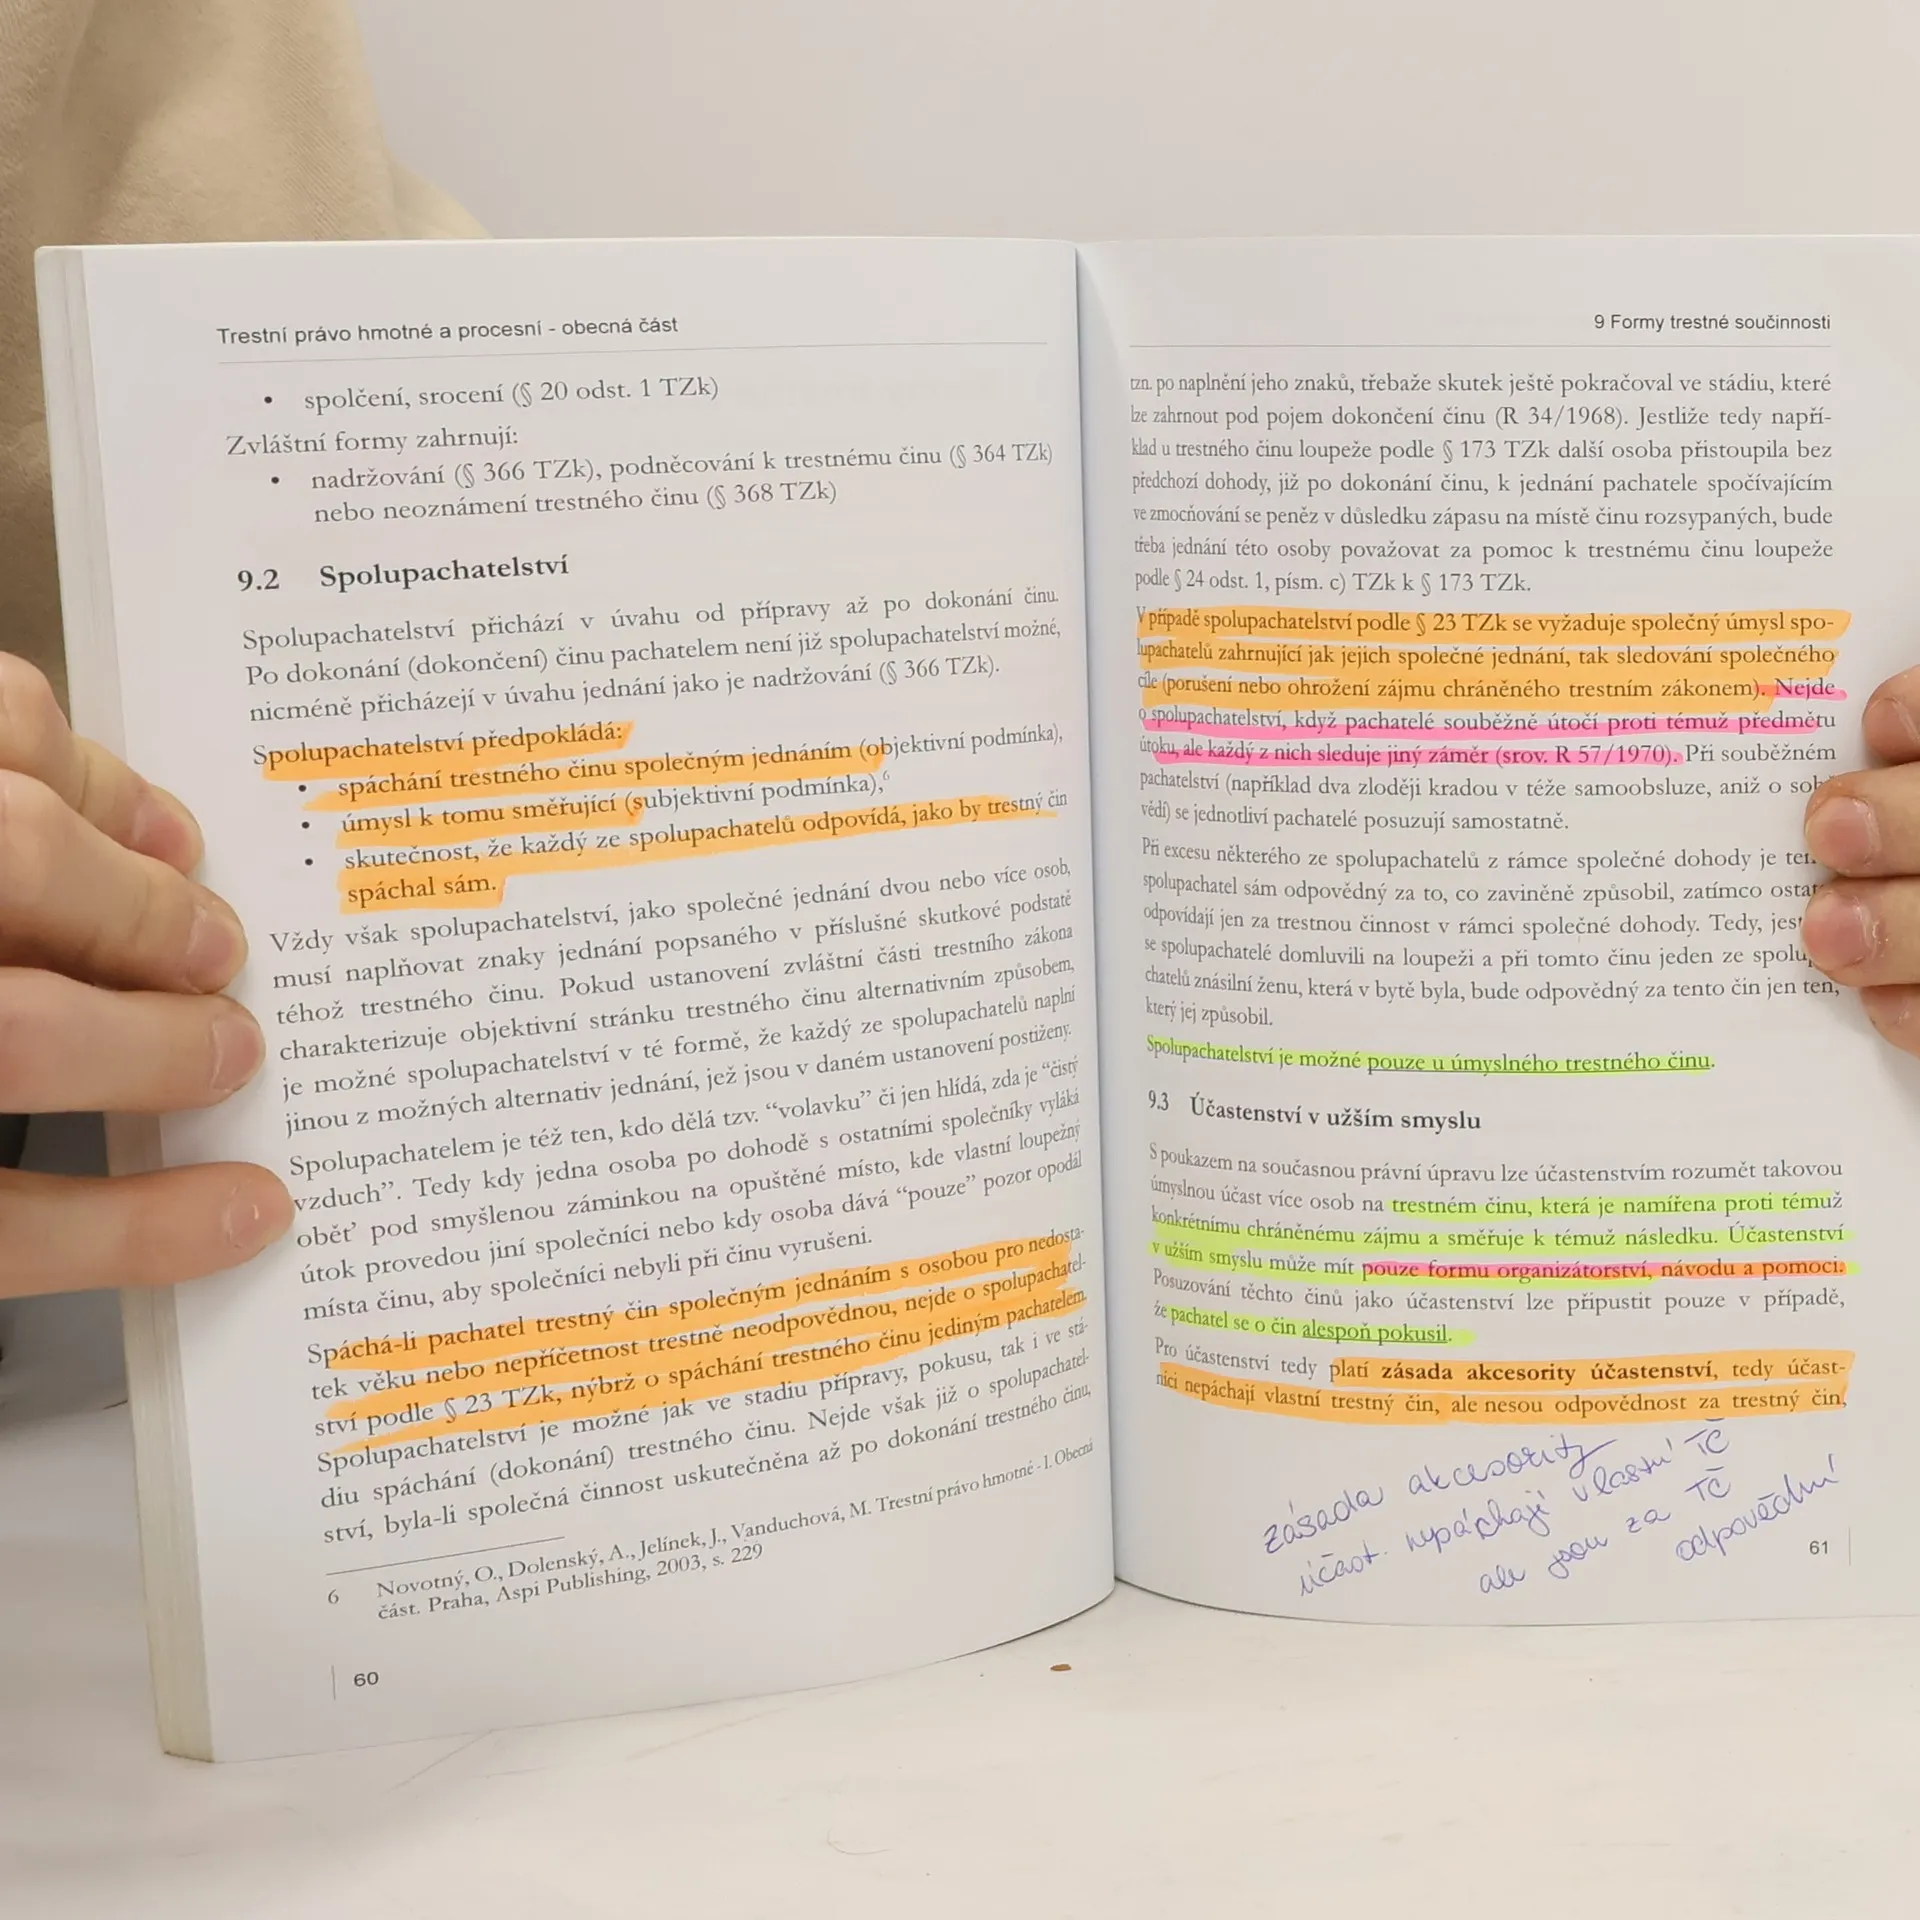 Trestní právo hmotné a procesní - obecná část
• spolčení, srocení (§ 20 odst. 1 TZk)
Zvláštní formy zahrnují:
• nadržování (§ 366 TZk), podněcování k trestnému činu (§ 364 TZk)
nebo neoznámení trestného činu (§ 368 TZk)
9.2 Spolupachatelství
Spolupachatelství přichází v úvahu od přípravy až po dokonání činu.
Po dokonání (dokončení) činu pachatelem není již spolupachatelství možné,
nicméně přicházejí v úvahu jednání jako je nadržování (§ 366 TZk).
Spolupachatelství předpokládá:
• spáchání trestného činu společným jednáním (objektivní podmínka),
• úmysl k tomu směřující (subjektivní podmínka),6
• skutečnost, že každý ze spolupachatelů odpovídá, jako by trestný čin
spáchal sám.
Vždy však spolupachatelství, jako společné jednání dvou nebo více osob,
musí naplňovat znaky jednání popsaného v příslušné skutkové podstatě
téhož trestného činu. Pokud ustanovení zvláštní části trestního zákona
charakterizuje objektivní stránku trestného činu alternativním způsobem,
je možné spolupachatelství v té formě, že každý ze spolupachatelů naplní
jinou z možných alternativ jednání, jež jsou v daném ustanovení postiženy.
Spolupachatelem je též ten, kdo dělá tzv. “volavku” či jen hlídá, zda je “čistý
vzduch”. Tedy kdy jedna osoba po dohodě s ostatními společníky vyláká
oběť pod smyšlenou záminkou na opuštěné místo, kde vlastní loupežný
útok provedou jiní společníci nebo kdy osoba dává “pouze” pozor opodál
místa činu, aby společníci nebyli při činu vyrušeni.
Spáchá-li pachatel trestný čin společným jednáním s osobou pro nedosta-
tek věku nebo nepříčetnost trestně neodpovědnou, nejde o spolupachatel-
ství podle § 23 TZk, nýbrž o spáchání trestného činu jediným pachatelem.
Spolupachatelství je možné jak ve stadiu přípravy, pokusu, tak i ve stá-
diu spáchání (dokonání) trestného činu. Nejde však již o spolupachatel-
ství, byla-li společná činnost uskutečněna až po dokonání trestného činu,
6 Novotný, O., Dolenský, A., Jelínek, J., Vanduchová, M. Trestní právo hmotné - I. Obecná
část. Praha, Aspi Publishing, 2003, s. 229
60
9 Formy trestné součinnosti
tzn. po naplnění jeho znaků, třebaže skutek ještě pokračoval ve stádiu, které
lze zahrnout pod pojem dokončení činu (R 34/1968). Jestliže tedy napří-
klad u trestného činu loupeže podle § 173 TZk další osoba přistoupila bez
předchozí dohody, již po dokonání činu, k jednání pachatele spočívajícím
ve zmocňování se peněz v důsledku zápasu na místě činu rozsypaných, bude
třeba jednání této osoby považovat za pomoc k trestnému činu loupeže
podle § 24 odst. 1, písm. c) TZk k § 173 TZk.
V případě spolupachatelství podle § 23 TZk se vyžaduje společný úmysl spo-
lupachatelů zahrnující jak jejich společné jednání, tak sledování společného
cíle (porušení nebo ohrožení zájmu chráněného trestním zákonem). Nejde
o spolupachatelství, když pachatelé souběžně útočí proti témuž předmětu
útoku, ale každý z nich sleduje jiný záměr (srov. R 57/1970). Při souběžném
pachatelství (například dva zloději kradou v téže samoobsluze, aniž o sob
vědí) se jednotliví pachatelé posuzují samostatně.
Při excesu některého ze spolupachatelů z rámce společné dohody je ten
spolupachatel sám odpovědný za to, co zaviněně způsobil, zatímco ostat
odpovídají jen za trestnou činnost v rámci společné dohody. Tedy, jest
se spolupachatelé domluvili na loupeži a při tomto činu jeden ze spolu
chatelů znásilní ženu, která v bytě byla, bude odpovědný za tento čin jen ten,
který jej způsobil.
Spolupachatelství je možné pouze u úmyslného trestného činu.
9.3 Účastenství v užším smyslu
S poukazem na současnou právní úpravu lze účastenstvím rozumět takovou
úmyslnou účast více osob na trestném činu, která je namířena proti témuž
konkrétnímu chráněnému zájmu a směřuje k témuž následku. Účastenství
v užším smyslu může mít pouze formu organizátorství, návodu a pomoci.
Posuzování těchto činů jako účastenství lze připustit pouze v případě,
že pachatel se o čin alespoň pokusil.
Pro účastenství tedy platí zásada akcesority účastenství, tedy účast-
níci nepáchají vlastní trestný čin, ale nesou odpovědnost za trestný čin,
zásada akcesority
účast. nepáchají vlastní TČ
ale jsou za TČ
odpovědní
61